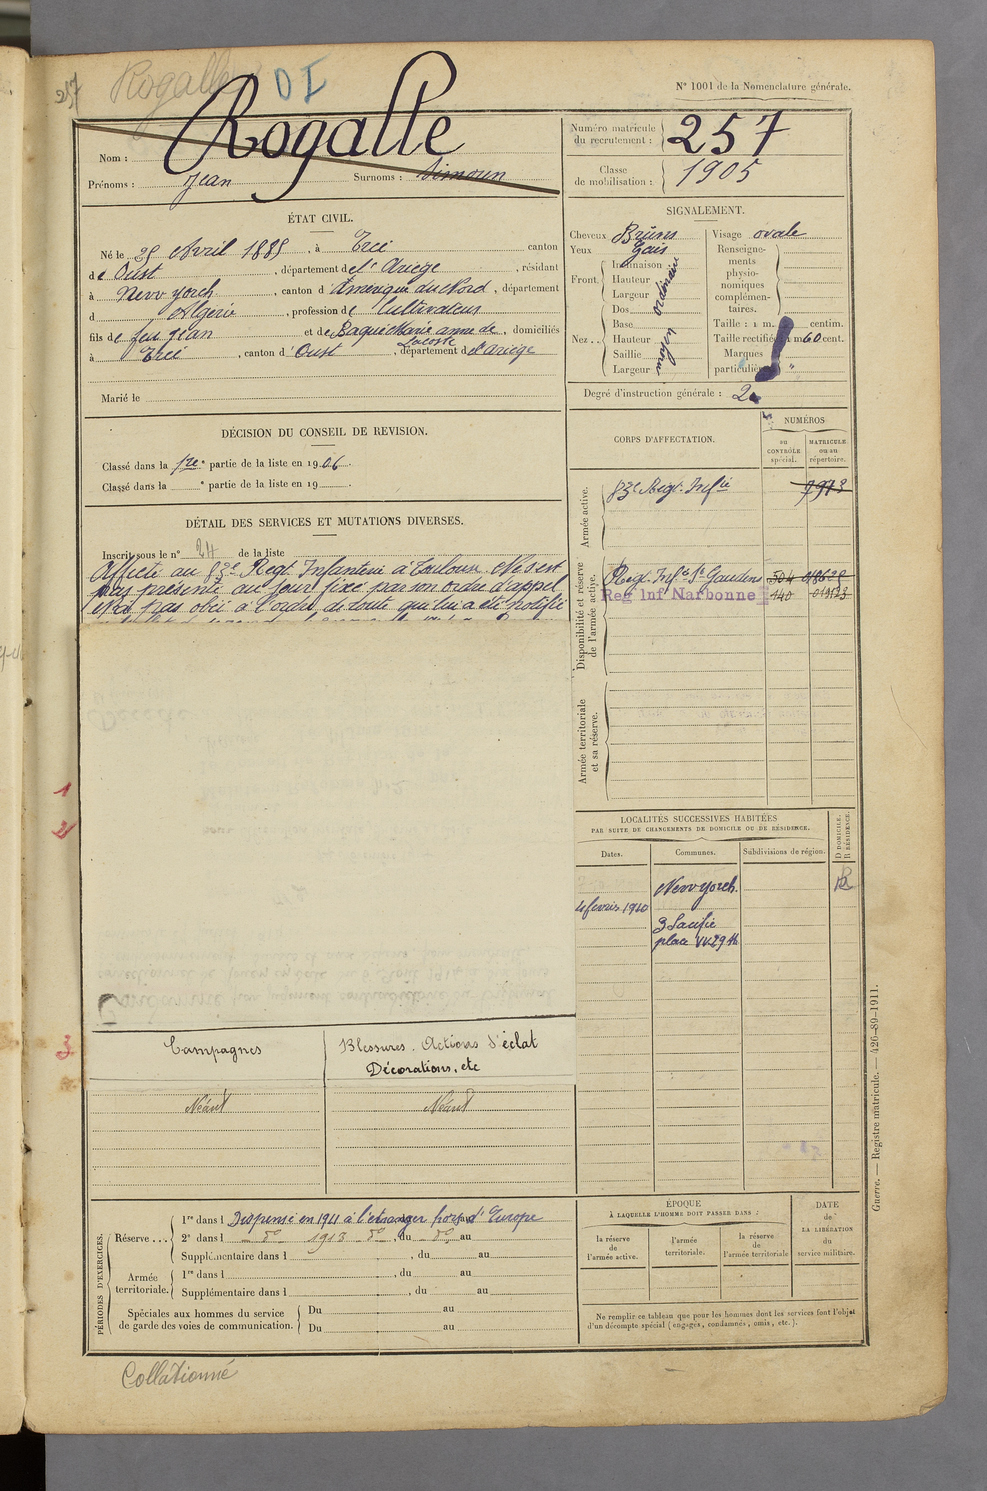 257
Rogalle
DI
N° 1001 de la Nomenclature générale.
Nom : Rogalle
Prénoms : Jean Surnoms : Simoun
Numéro matricule du recrutement : 257
Classe de mobilisation : 1905
ÉTAT CIVIL.
Né le 25 Avril 1885, à Ercé canton
de Oust, département de l'Ariège, résidant
à New yorck, canton d'Amérique du Nord, département
d Algérie, profession de Cultivateur
fils de feu Jean et de Baqué Marie anne de Lacoste, domiciliés
à Ercé, canton d'Oust, département de l'Ariège
Marié le
SIGNALEMENT.
Cheveux Bruns Visage ovale
Yeux Gris
Front. Inclinaison
Hauteur
Largeur
ordinaire
Nez.. Dos
Base
Hauteur
Saillie
Largeur
moyen
Renseignements physionomiques complémentaires.
Taille : 1 m. centim.
Taille rectifiée 1 m 60 cent.
Marques particulières "
Degré d'instruction générale : 2
DÉCISION DU CONSEIL DE REVISION.
Classé dans la 1re partie de la liste en 1906.
Classé dans la ° partie de la liste en 19 .
CORPS D'AFFECTATION.
NUMÉROS
au CONTRÔLE spécial.
MATRICULE ou au répertoire.
Armée active.
83e Regt. Infie
Disponibilité et réserve de l'armée active.
Regt Infie St Gaudens 504
Reg Inf Narbonne 140
Armée territoriale et sa réserve.
DÉTAIL DES SERVICES ET MUTATIONS DIVERSES.
Inscrit sous le n° 24 de la liste
Affecté au 83e Regt. Infanterie à Toulouse. Ne s'est
pas présenté au jour fixé par son ordre d'appel
et n'a pas obéi à l'ordre de route qui lui a été notifié
1
2
3
LOCALITÉS SUCCESSIVES HABITÉES
PAR SUITE DE CHANGEMENTS DE DOMICILE OU DE RÉSIDENCE.
D DOMICILE.
R RÉSIDENCE.
Dates. Communes. Subdivisions de région.
New yorch. R
4 fevrier 1910
3 Pacific
place W 29 th
Campagnes
Blessures. Actions d'éclat
Décorations, etc
Néant Néant
PÉRIODES D'EXERCICES.
Réserve ... 1re dans l Dispensé en 1911 à l'étranger hors d'Europe
2e dans l do 1913 do, du do au
Supplémentaire dans l , du au
Armée territoriale. 1re dans l , du au
Supplémentaire dans l , du au
Spéciales aux hommes du service de garde des voies de communication. Du au
Du au
ÉPOQUE
À LAQUELLE L'HOMME DOIT PASSER DANS :
la réserve de l'armée active.
l'armée territoriale.
la réserve de l'armée territoriale
DATE de LA LIBÉRATION du service militaire.
Ne remplir ce tableau que pour les hommes dont les services font l'objet
d'un décompte spécial (engagés, condamnés, omis, etc.).
Guerre. — Registre matricule. — 426-89-1911.
Collationné